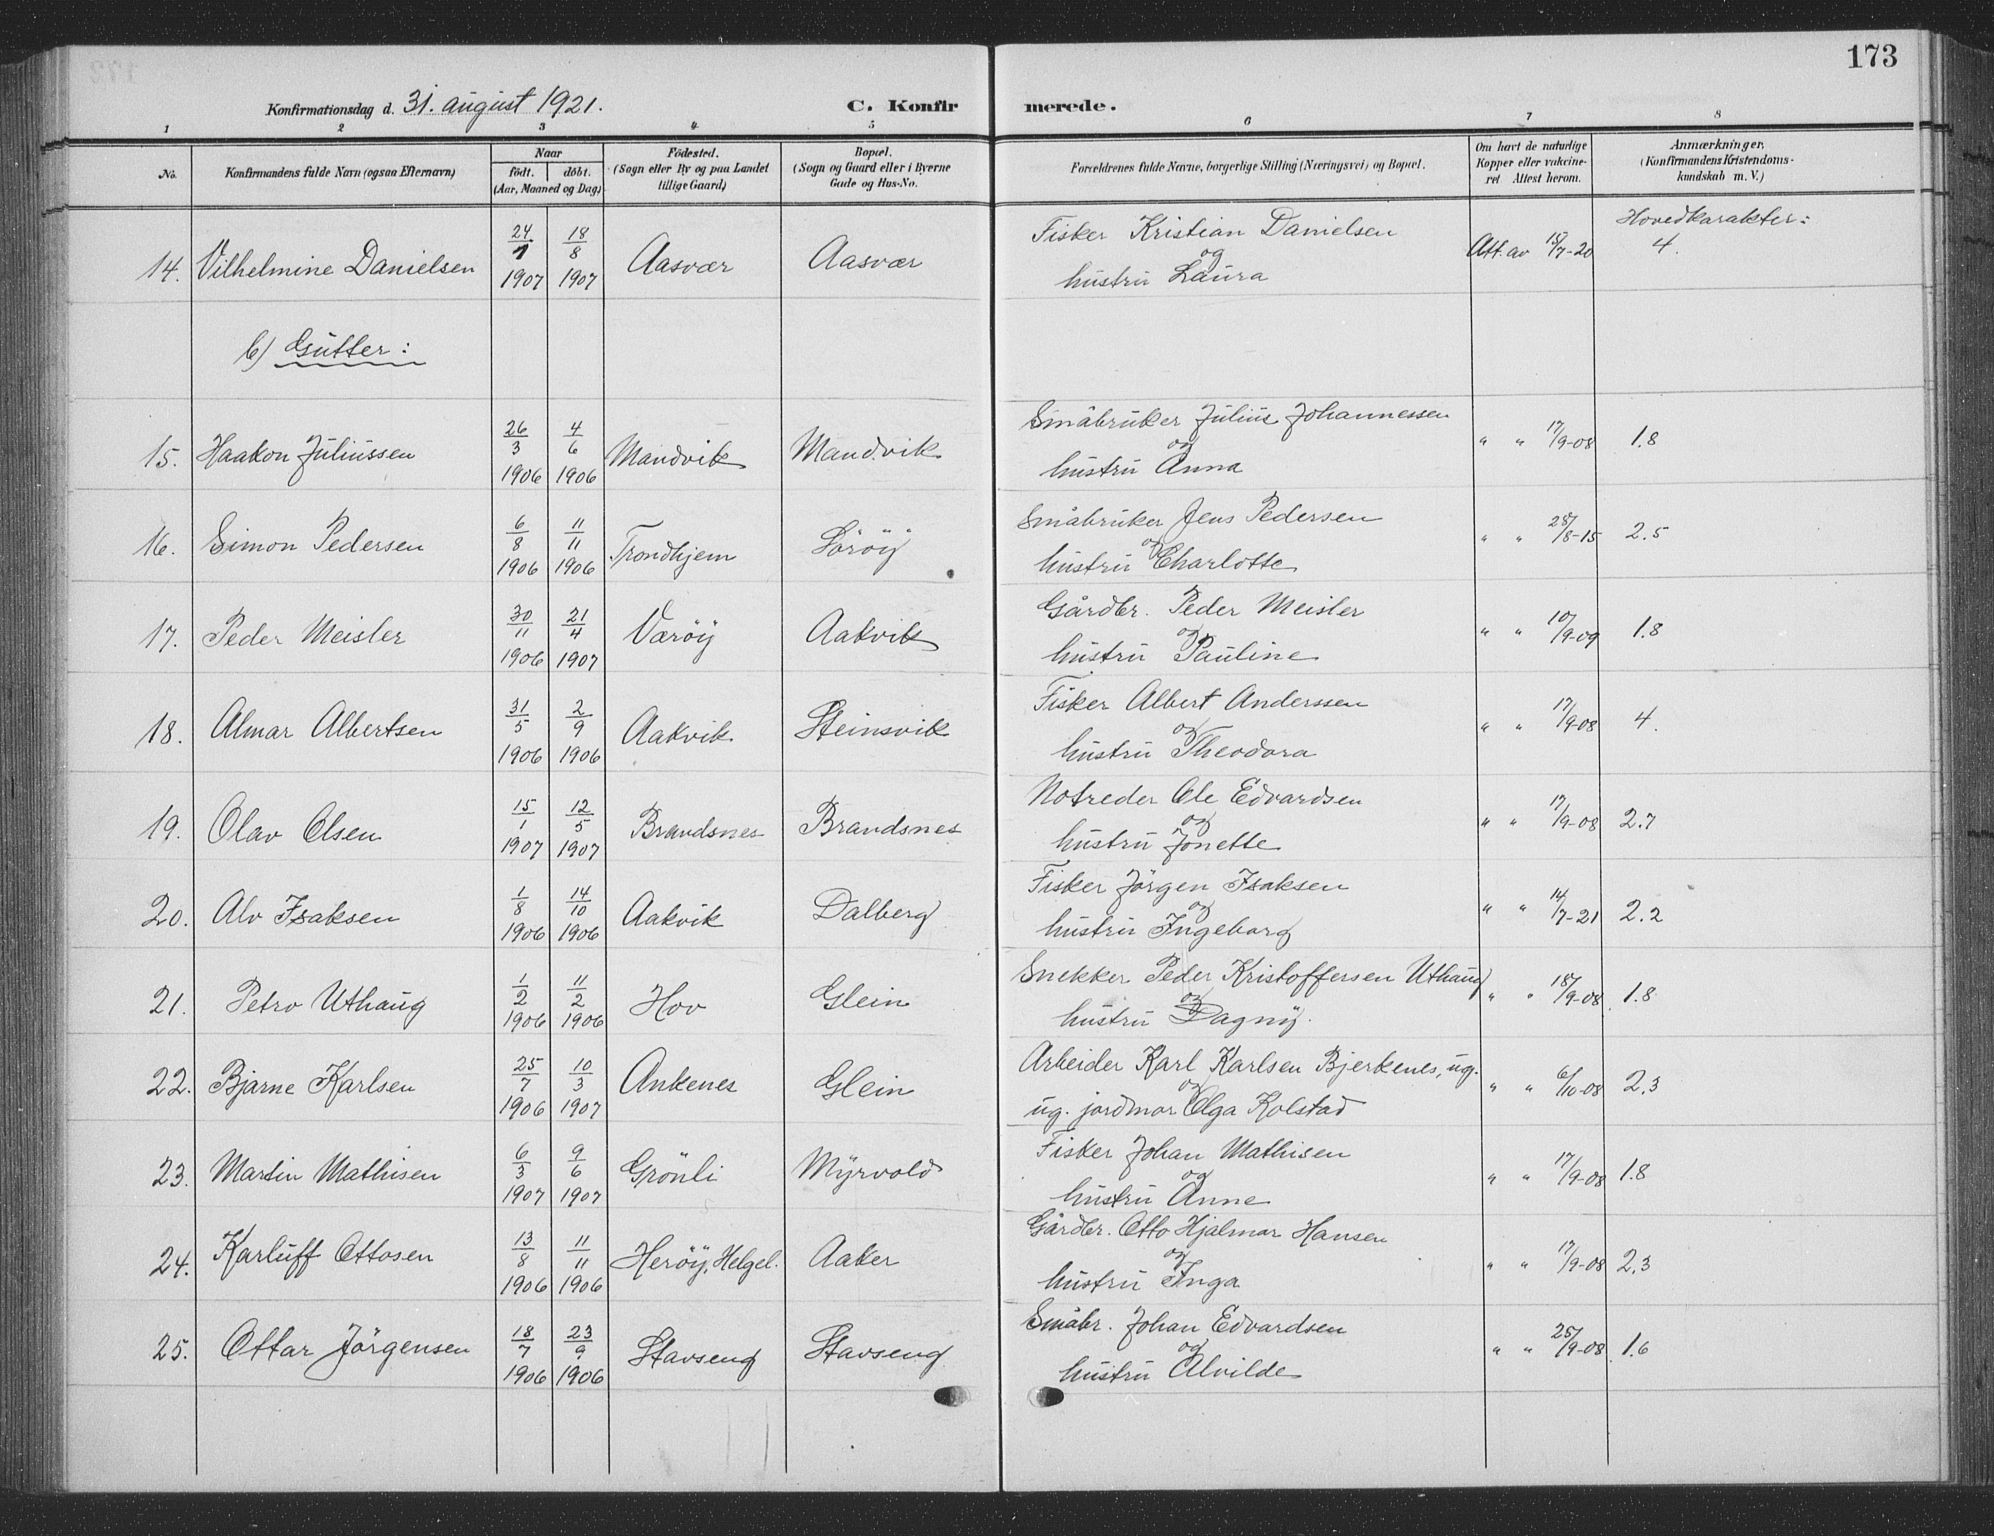 173
Konfirmationsdag d. 31. august 1921. C. Konfirmerede.
1 2 3 4 5 6 7 8
No. Konfirmandens fulde Navn (ogsaa Efternavn) Naar født. døbt. (Aar, Maaned og Dag) Fødested. (Sogn eller By og paa Landet tillige Gaard) Bopæl. (Sogn og Gaard eller i Byerne Gade og Hus-No. Forældrenes fulde Navne, borgerlige Stilling (Næringsvei) og Bopæl. Om havt de naturlige Kopper eller vakcineret Attest herom. Anmærkninger. (Konfirmandens Kristendomskundskab m. V.)
Hovedkarakter:
14. Vilhelmine Danielsen 24/7 1907 18/8 1907 Aasvær Aasvær Fisker Kristian Danielsen og hustru Laura Att. av 15/7-20 4.
b) Gutter:
15. Haakon Juliussen 26/3 1906 4/6 1906 Mandvik Mandvik Småbruker Julius Johannessen og hustru Anna " " 17/9-08 1.8
16. Simon Pedersen 6/8 1906 11/11 1906 Trondhjem Sørøy Småbruker Jens Pedersen og hustru Charlotte " " 28/8-15 2.5
17. Peder Meisler 30/11 1906 21/4 1907 Værøy Aakvik Gårdbr. Peder Meisler og hustru Pauline " " 10/9-09 1.8
18. Almar Albertsen 31/5 1906 2/9 1906 Aakvik Steinsvik Fisker Albert Anderssen og hustru Theodora " " 17/9-08 4.
19. Olav Olsen 15/1 1907 12/5 1907 Brandsnes Brandsnes Notreder Ole Edvardsen og hustru Jonette " " 17/9-08 2.7
20. Alv Isaksen 1/8 1906 14/10 1906 Aakvik Dalberg Fisker Jørgen Isaksen og hustru Ingeborg " " 14/7-21 2.2
21. Petro Uthaug 1/2 1906 11/2 1906 Hov Glein Snekker Peder Kristoffersen Uthaug og hustru Dagny. " " 18/9-08 1.8
22. Bjarne Karlsen 25/7 1906 10/3 1907 Ankenes Glein Arbeider Karl Karlsen Bjerkenes, ug. og ug. jordmor Olga Kolstad " " 6/10-08 2.3
23. Martin Mathisen 6/3 1907 9/6 1907 Grønli Myrvold Fisker Johan Mathisen og hustru Anne " " 17/9-08 1.8
24. Karluff Ottosen 13/8 1906 11/11 1906 Herøy, Helgel. Aaker Gårdbr. Otto Hjalmar Hansen og hustru Inga " " 17/9-08 2.3
25. Ottar Jørgensen 18/7 1906 23/9 1906 Stavseng Stavseng Småbr. Johan Edvardsen og hustru Alvilde " " 25/9-08 1.6